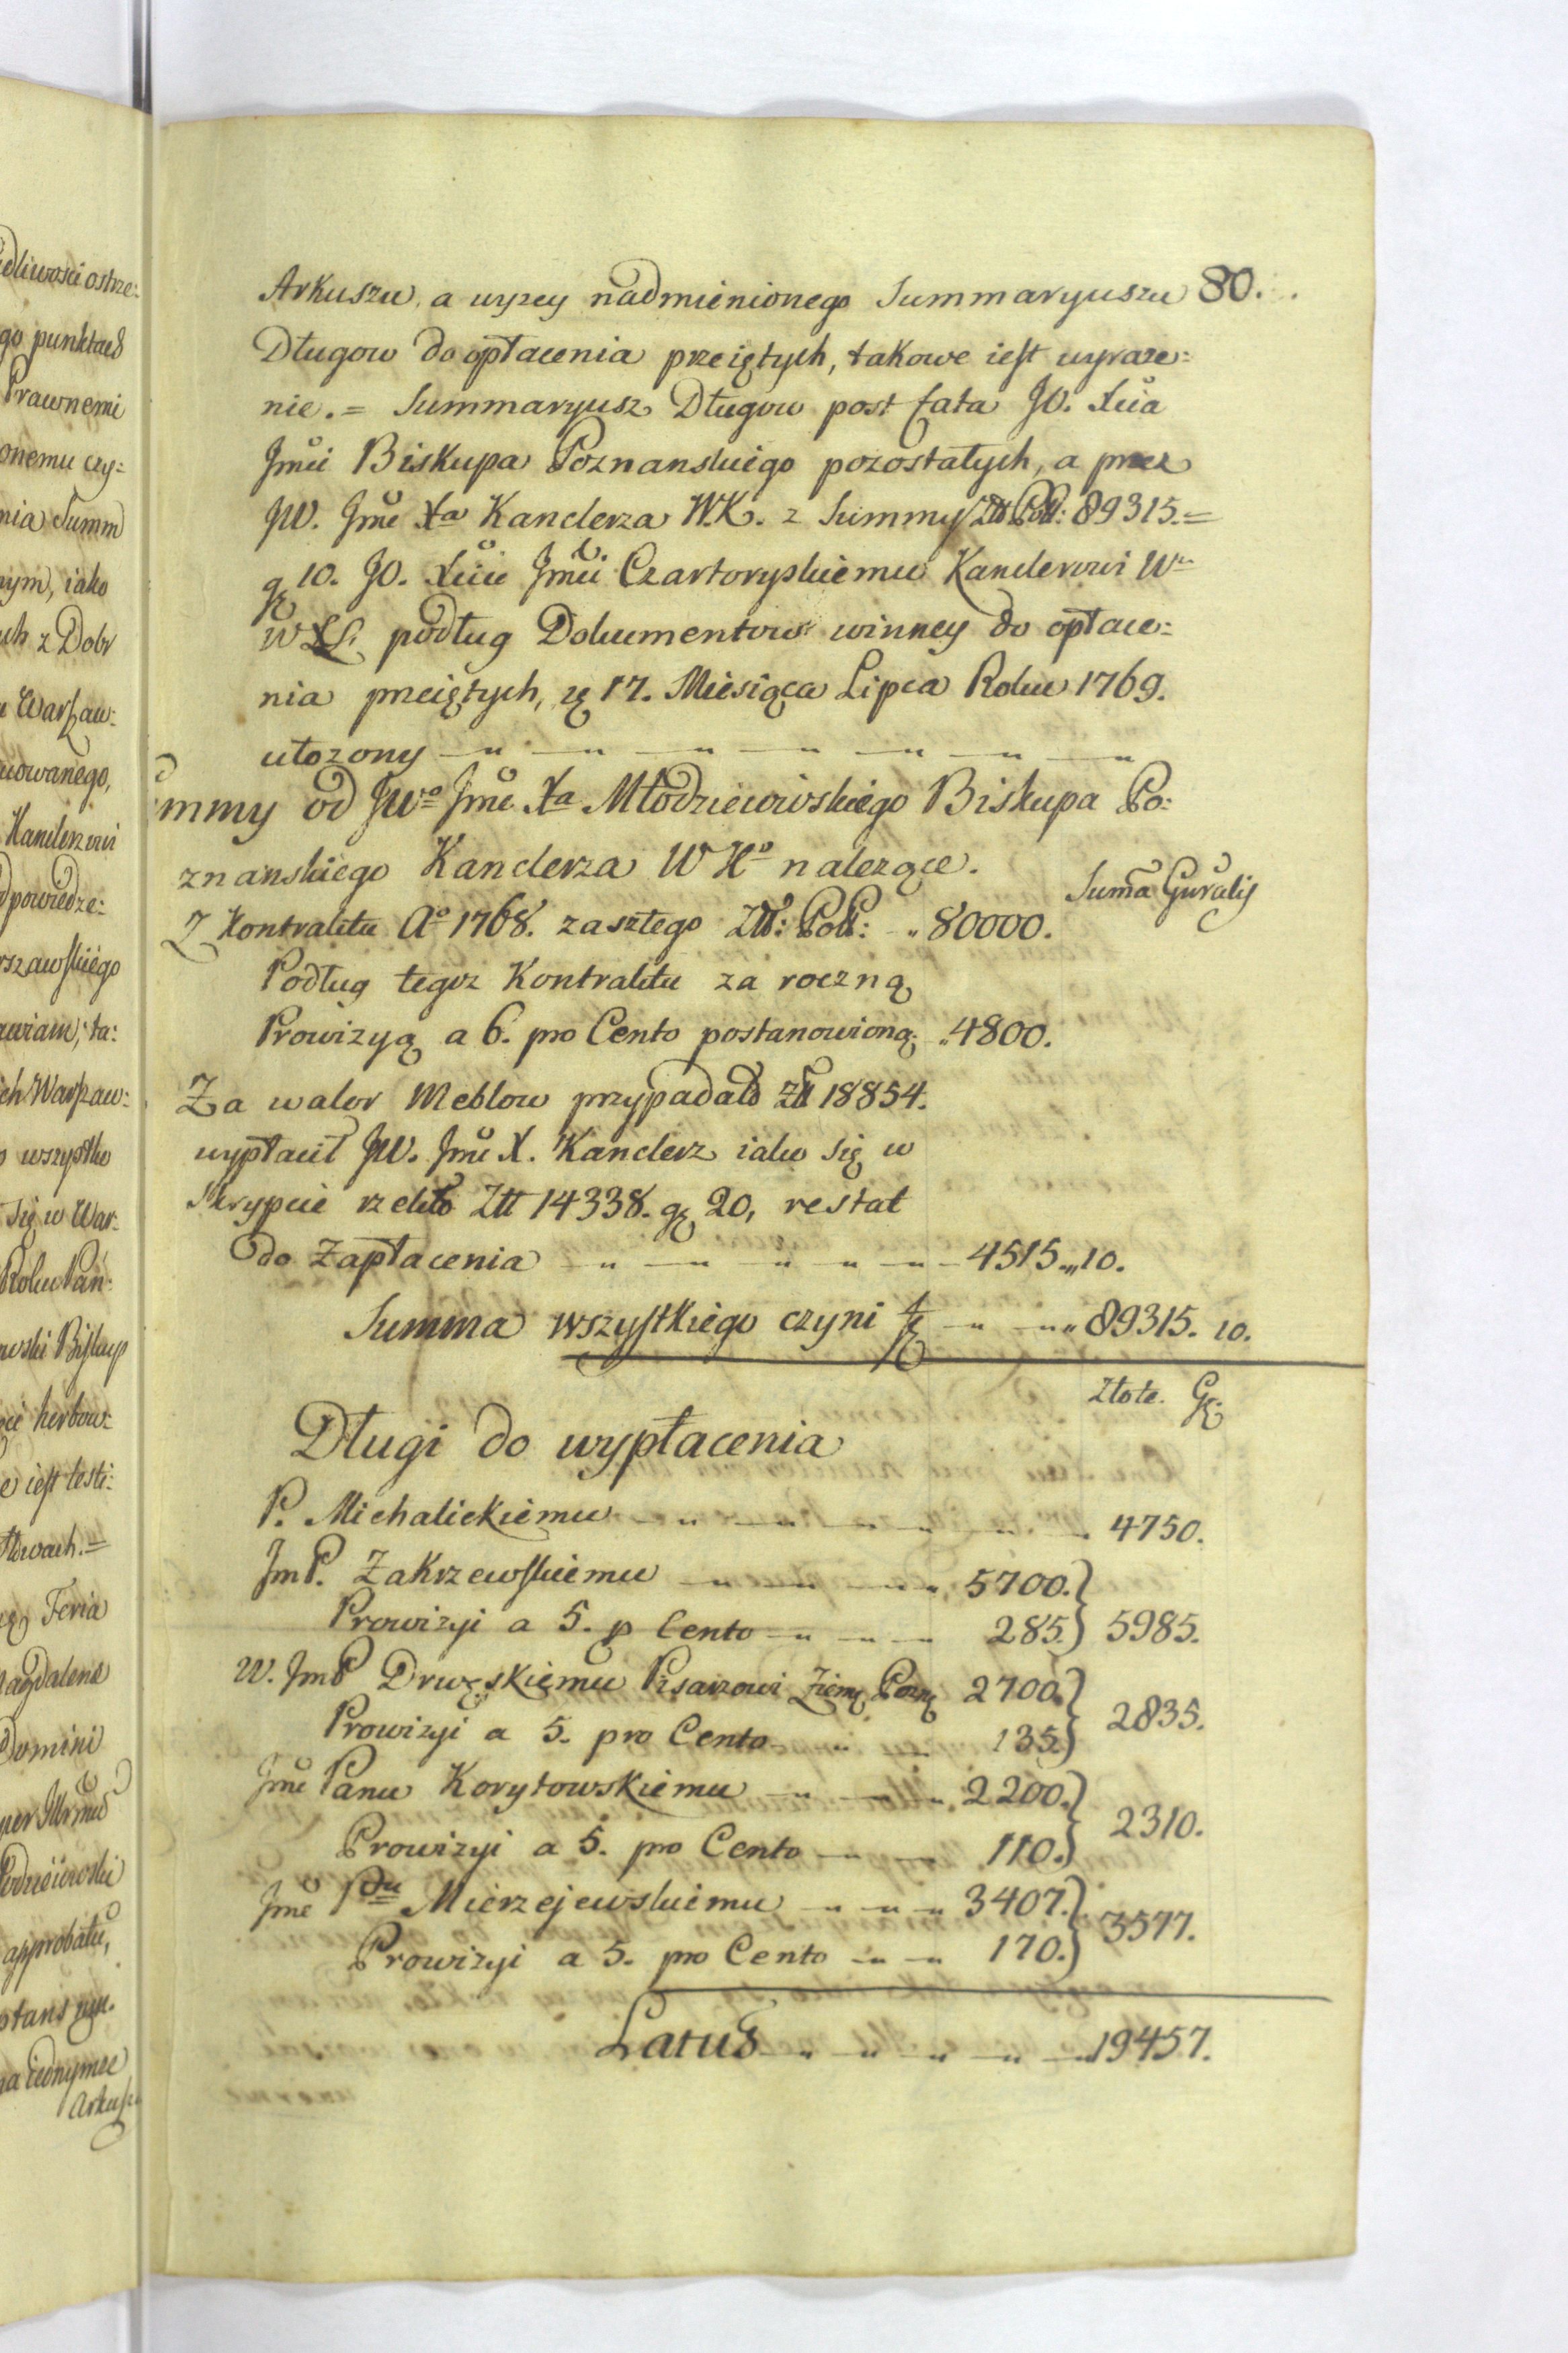 edliwosci ostrze:
go punktach
Prawnemi
onemu czy:
nia Summ
nym, iako
ich z Dobr
u Warszaw:
nowanego,
Kanclerzowi
dpowiedze:
rszawskiego
awiam, ta:
ch Warszaw:
o wszystko
Się w War:
Roku Pań:
wski Biskup
herbow:
e iest testi:
Feria
Magdalena
Domini
per Illrmũ
approbatũ,
na iednymże
Arkusz
Arkuszu, a wyzey nadmienionego Summaryuszu 80.
Długow do opłacenia przeiętych, takowe iest wyraże:
nie. = Summaryusz Długow post fata JO. Xcia
Jmci Biskupa Poznanskiego pozostałych, a przez
JW. Jmć Xa Kanclerza W.K. z Summy Złł Poll: 89315.=
gę 10. JO. Xciu Jmći Czartoryskiemu Kanclerowi Wu
WXL. podług Dokumentow winney do opłace:
nia przeiętych, dę 17. Miesiąca Lipca Roku 1769.
ułozony
mmy od JWo Jmć Xa Młodzieiowskiego Biskupa Po:
znanskiego Kanclerza W Ko nalezące.
Sum̃a Gnralis
Z Kontraktu Ao 1768. zaszłego Złł: Poll: „ 80000.
Podług tegoz Kontraktu za roczną
Prowizyą a 6. pro Cento postanowioną „4800.
Za walor Meblow przypadało złł 18854.
wypłacił JW. Jmć X. Kanclerz iako się w
Skrypcie rzekło Złł 14338. gę 20, restat
do Zapłacenia 4515„10.
Summa wszystkiego czyni fę „89315. 10.
Złote. Gę
Długi do wypłacenia
P. Michalickiemu 4750.
JmP. Zakrzewskiemu 5700.
Prowizyi a 5. p Cento 285. 5985.
W. JmP Drwęskiemu Pisarzowi Ziemę Poznę 2700.
Prowizyi a 5. pro Cento 135. 2835.
Jmć Panu Korytowskiemu 2200.
Prowizyi a 5. pro Cento 110. 2310.
Jmć Pdu Mierzejewskiemu 3407.
Prowizyi a 5. pro Cento 170. 3577.
Latus 19457.